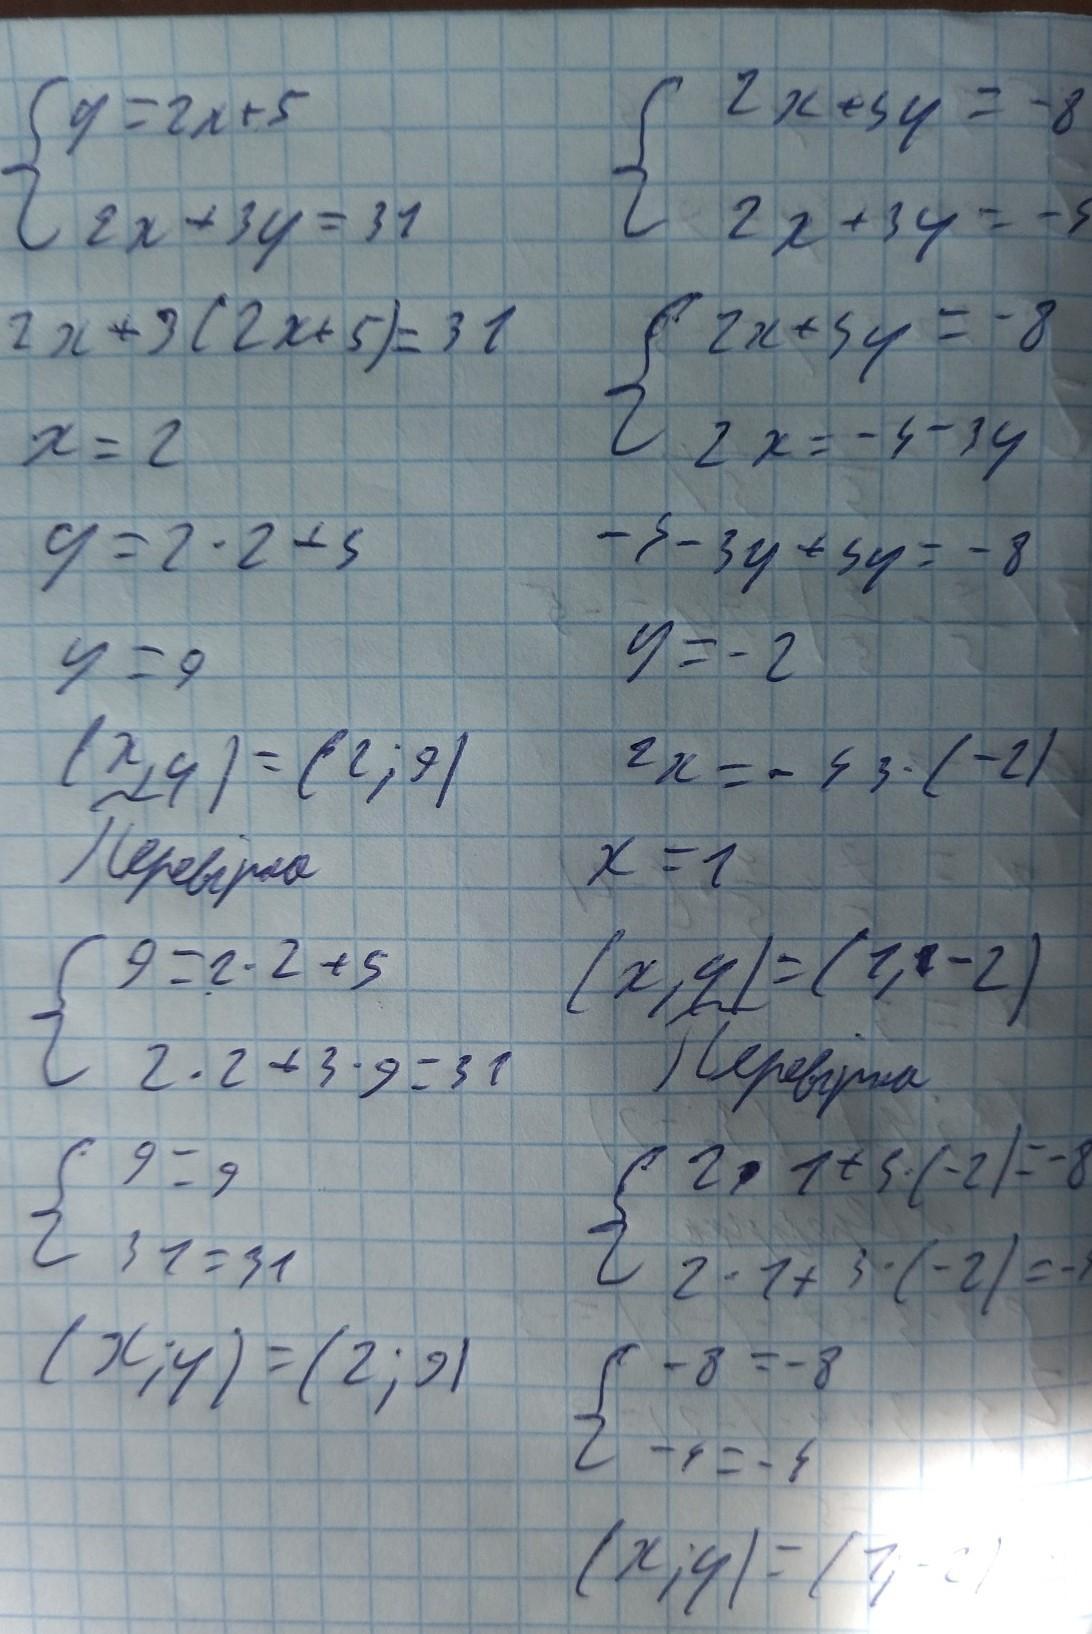 y = 2x + 5
2x + 3y = 31
2x + 3(2x + 5) = 31
x = 2
y = 2 · 2 + 5
y = 9
(x, y) = (2; 9)
Перевірка
9 = 2 · 2 + 5
2 · 2 + 3 · 9 = 31
9 = 9
31 = 31
(x; y) = (2; 9)
2x + 5y = -8
2x + 3y = -4
2x + 5y = -8
2x = -4 - 3y
-4 - 3y + 5y = -8
y = -2
2x = -4 3 · (-2)
x = 1
(x, y) = (1, -2)
Перевірка
2 · 1 + 5 · (-2) = -8
2 · 1 + 3 · (-2) = -4
-8 = -8
-4 = -4
(x; y) = (1; -2)